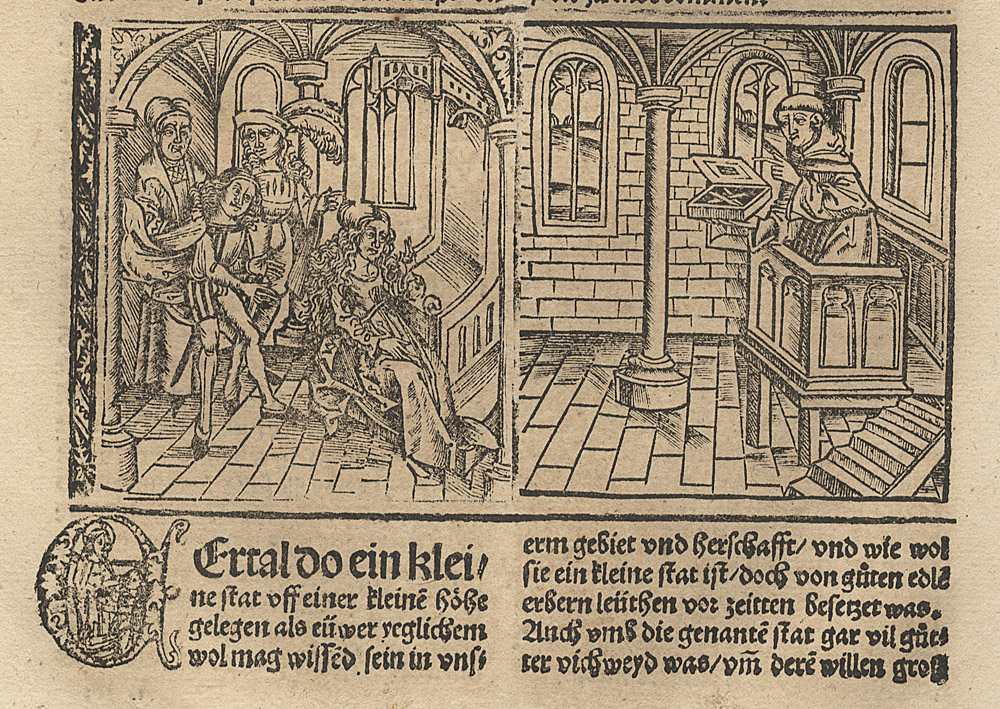 CErtaldo ein klei/
ne ſtat vff einer kleinē höhe
gelegen als eüwer yeglichem
wol mag wiſſēd ſein in vnſ/
erm gebiet vnd herſchafft/ vnd wie wol
ſie ein kleine ſtat iſt/ doch von gůten edlē
erbern leüthen vor zeitten beſetzet was.
Auch vmb die genantē ſtat gar vil gůt⸗
ter vichweyd was/ vm̄ derē willen groß